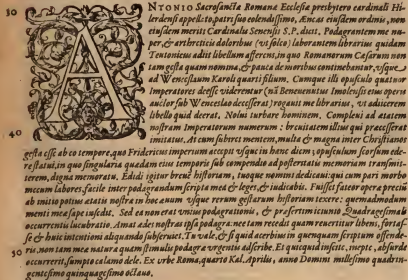 30 NTONIO Sacrosanctæ Romanæ Ecclesiæ presbytero cardinali Hi-
lerdensi appellato, patri suo colendissimo, Æneas eiusdem ordinis, non
eiusdem meriti Cardinalis Senensis S. P. dicit. Podagrantem me nu-
per, & arthreticis doloribus (ut soleo) laborantem librarius quidam
Teutonicus adiit libellum afferens, in quo Romanorum Cæsarum non
tam gesta quam nomina, & pauca de moribus continebantur, usque
ad Wenceslaum Karoli quarti filium. Cumque illi opusculo quatuor
Imperatores deesse viderentur (nã Beneuenutus Imolensis eius operis
auctor sub Wenceslao decesserat) rogauit me librarius, ut adiicerem
libello quid deerat. Nolui turbare hominem. Compleui ad ætatem
40 nostram Imperatorum numerum: breuitatem illius qui præcesserat
imitatus. At cum subiret mentem, multa & magna inter Christianos
gesta esse ab eo tempore, quo Fridericus imperium accepit usque in hanc diem: opusculum seorsum ede-
re statui, in quo singularia quædam eius temporis sub compendio ad posteritatis memoriam transmit-
terem, digna memoratu. Edidi igitur breuē historiam, tuoque nomini dedicaui: qui cum pari morbo
mecum labores, facile inter podagrandum scripta mea & leges, & iudicabis. Fuisset fateor operæ precium
ab initio potius ætatis nostræ in hoc æuum usque rerum gestarum historiam texere: quemadmodum
menti meæ sæpe insedit. Sed ea non erat unius podagrationis, & præsertim icunio Quadragesimali
occurrentis lucubratio. Amat dolet nostras ipsa podagra: nec tam recedit quam reuertitur libens, forta[s]-
se & huic intentioni aliquando subseruiet. Tu vale, & si quid acerbius in quenquam scriptum offende-
50 ris, non tam meæ naturæ quam stimulis podagræ urgentis adscribe. Et quicquid insit, inepte, absurde
occurrerit, sumpto calamo dele. Ex urbe Roma, quarto Kal. Aprilis, anno Domini millesimo quadrin-
gentesimo quinquagesimo octauo.